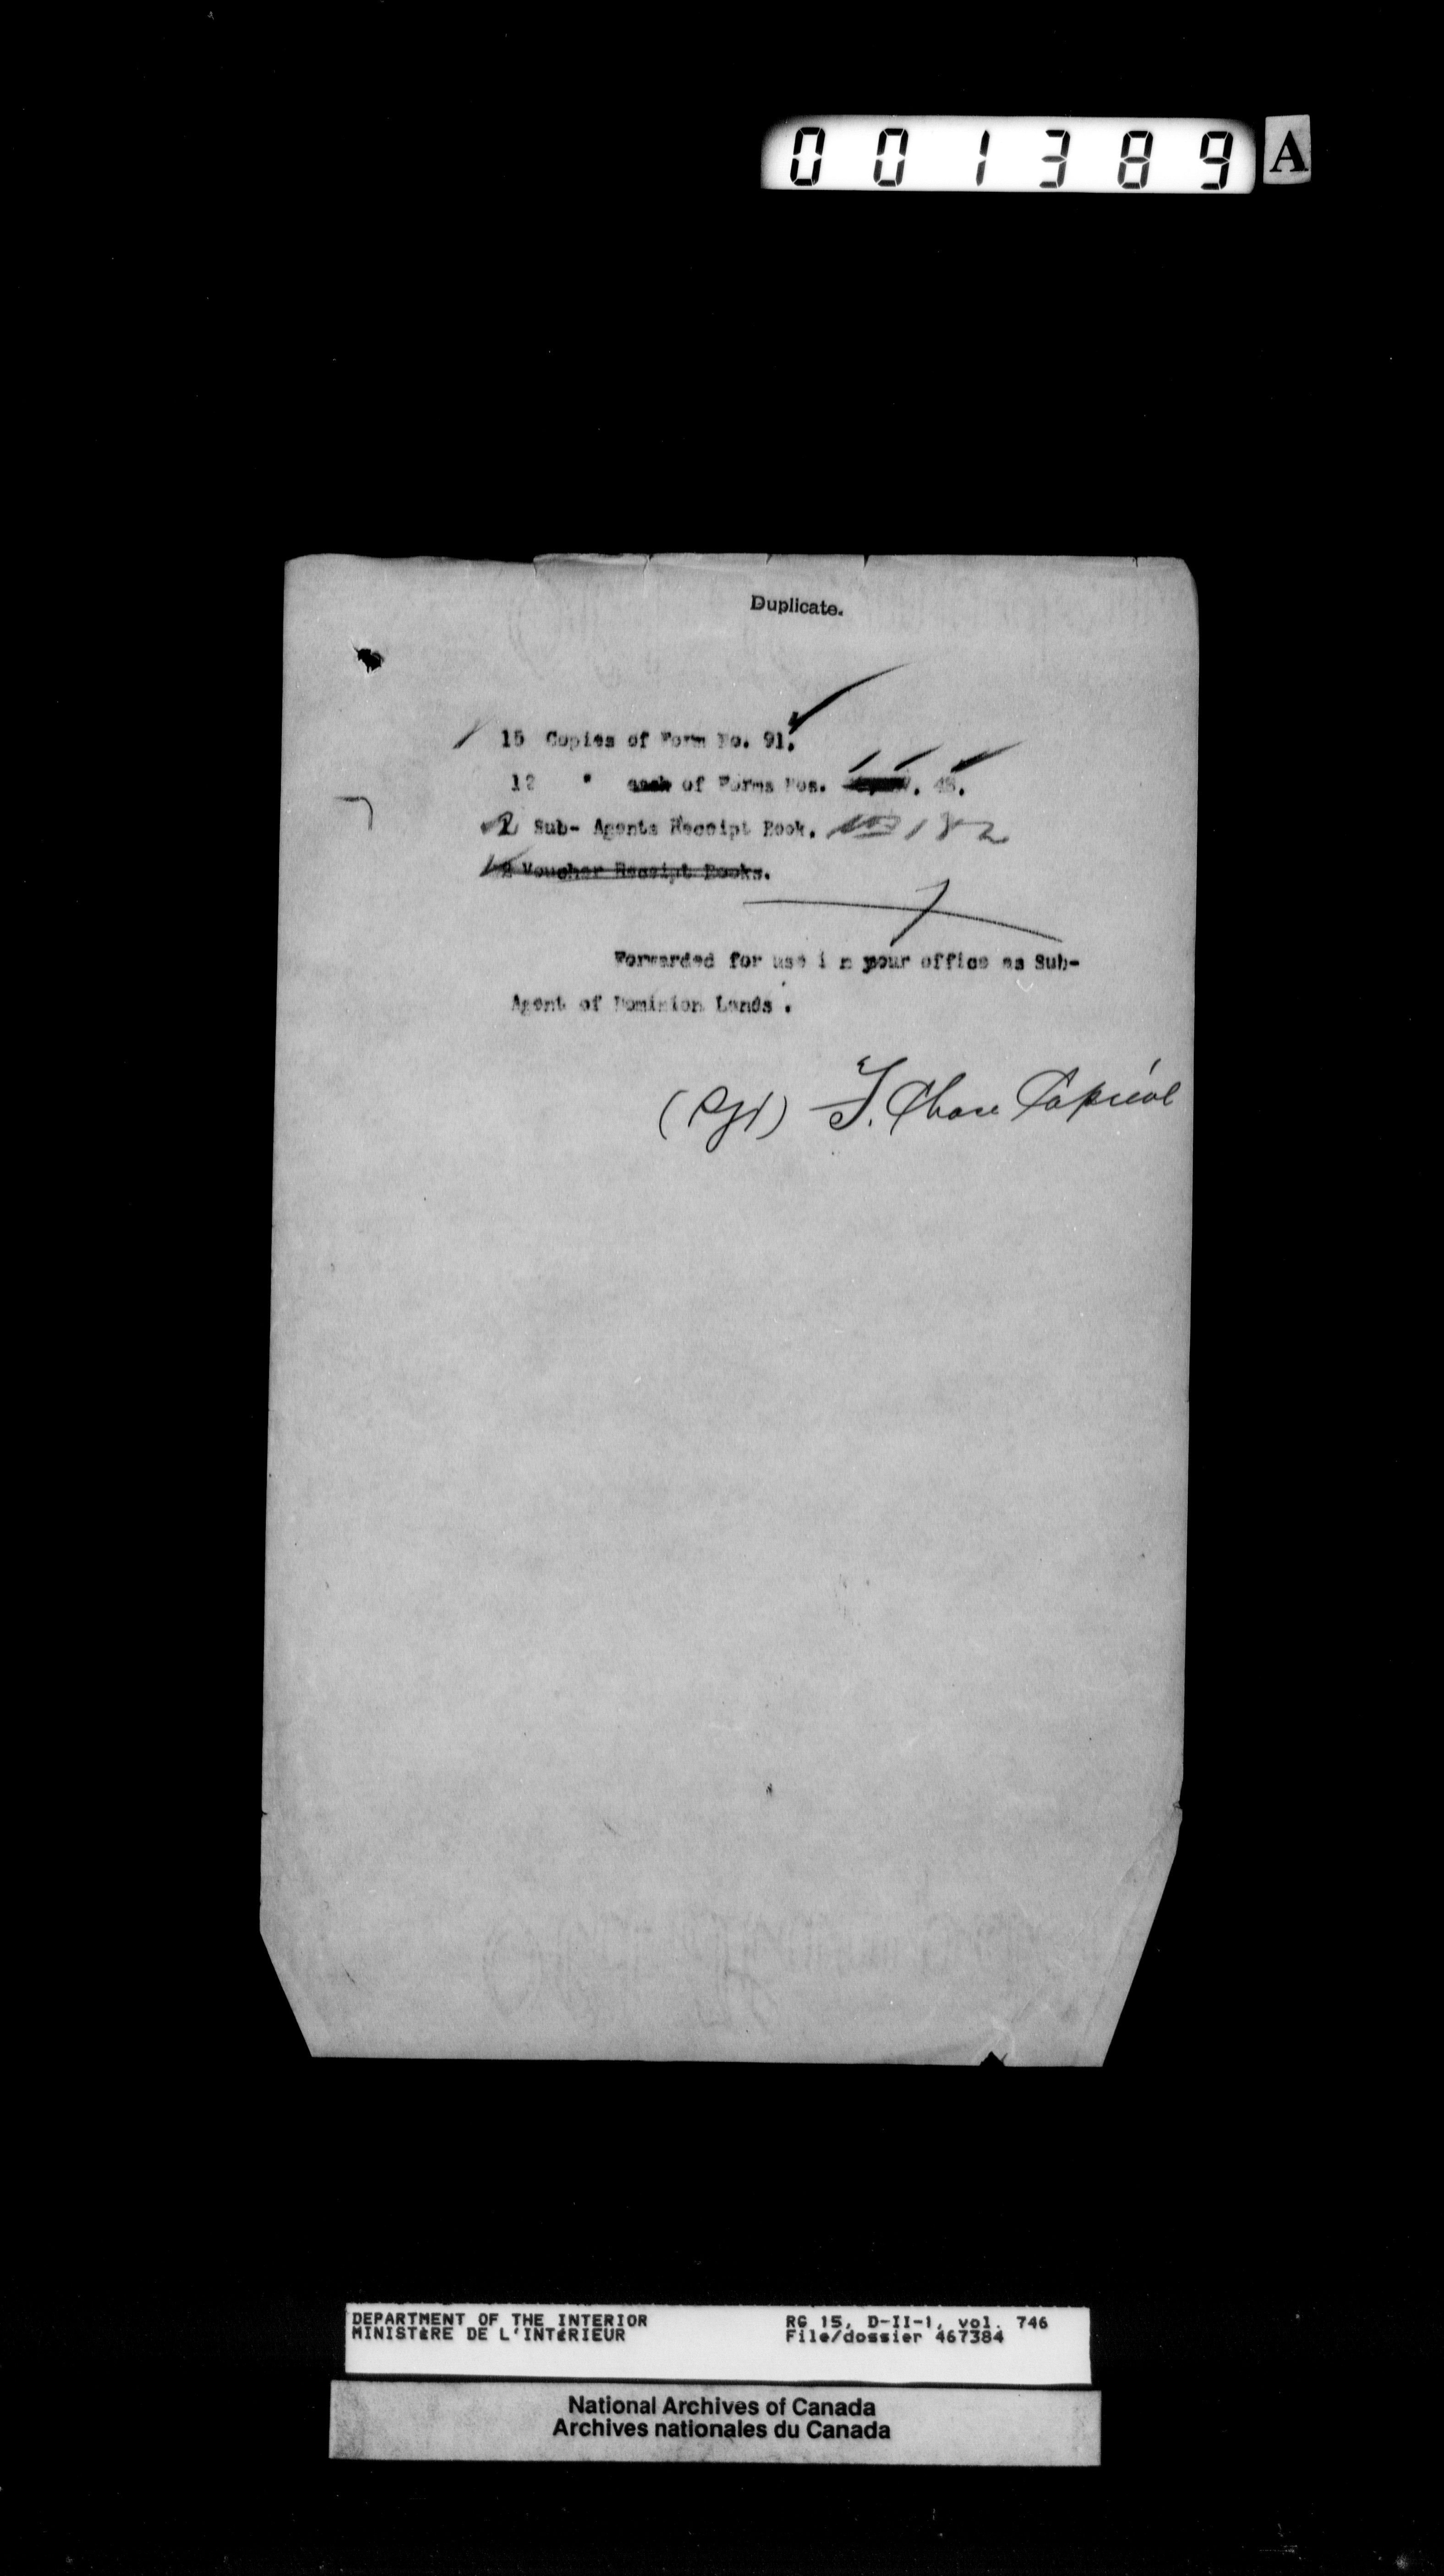 001389 A
Duplicate.
15 Copies of Form No. 91.
12 " each of Forms Nos. 48.
2 Sub- Agents Receipt Book. No 182
2 Voucher Receipt Books.
Forwarded for use i n your office as Sub-
Agent of Dominion Lands .
(Sgd) F. Chase Capreol
DEPARTMENT OF THE INTERIOR RG 15, D-II-1, vol. 746
MINISTÈRE DE L'INTÉRIEUR File/dossier 467384
National Archives of Canada
Archives nationales du Canada